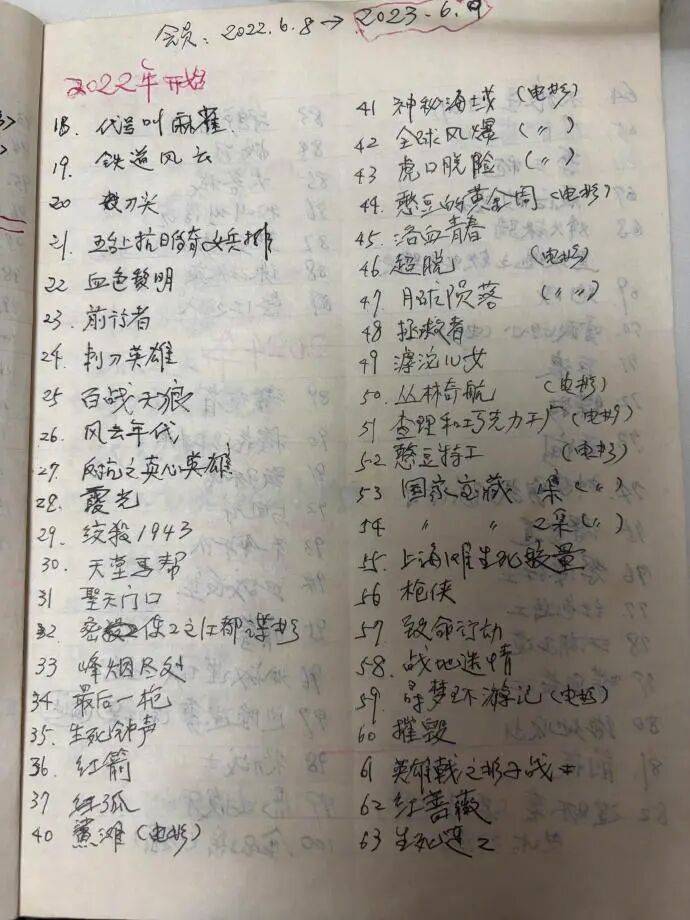 会员：2022.6.8→2023.6.9
2022年开始
18. 代号叫麻雀
19. 铁道风云
20 尖刀
21. 抗日奇女兵排
22 血色黎明
23. 前行者
24. 刺刀英雄
25 百战天狼
26. 风云年代
27. 反抗之真心英雄
28. 霞光
29. 绞殺1943
30. 天堂马帮
31 聖天门口
32. 之江都谍影
33 烽烟尽处
34. 最后一枪
35. 生死钟声
36. 红箭
37 红狐
40 鲨滩（电影）
41 神秘海域（电影）
42 全球风爆（〃）
43 虎口脱险（〃）
44. 憨豆的黄金周（电影）
45. 浴血青春
46. 超脱（电影）
47. 月球陨落（〃）
48 拯救者
49 滹沱儿女
50. 丛林奇航（电影）
51 查理和巧克力工厂（电影）
52 憨豆特工（电影）
53 国家宝藏 集（〃）
54 〃 〃 2集（〃）
55. 上海滩生死较量
56 枪侠
57 致命行动
58. 战地迷情
59. 寻梦环游记（电影）
60 摧毁
61 英雄戟之影子战士
62 红蔷薇
63 生死连